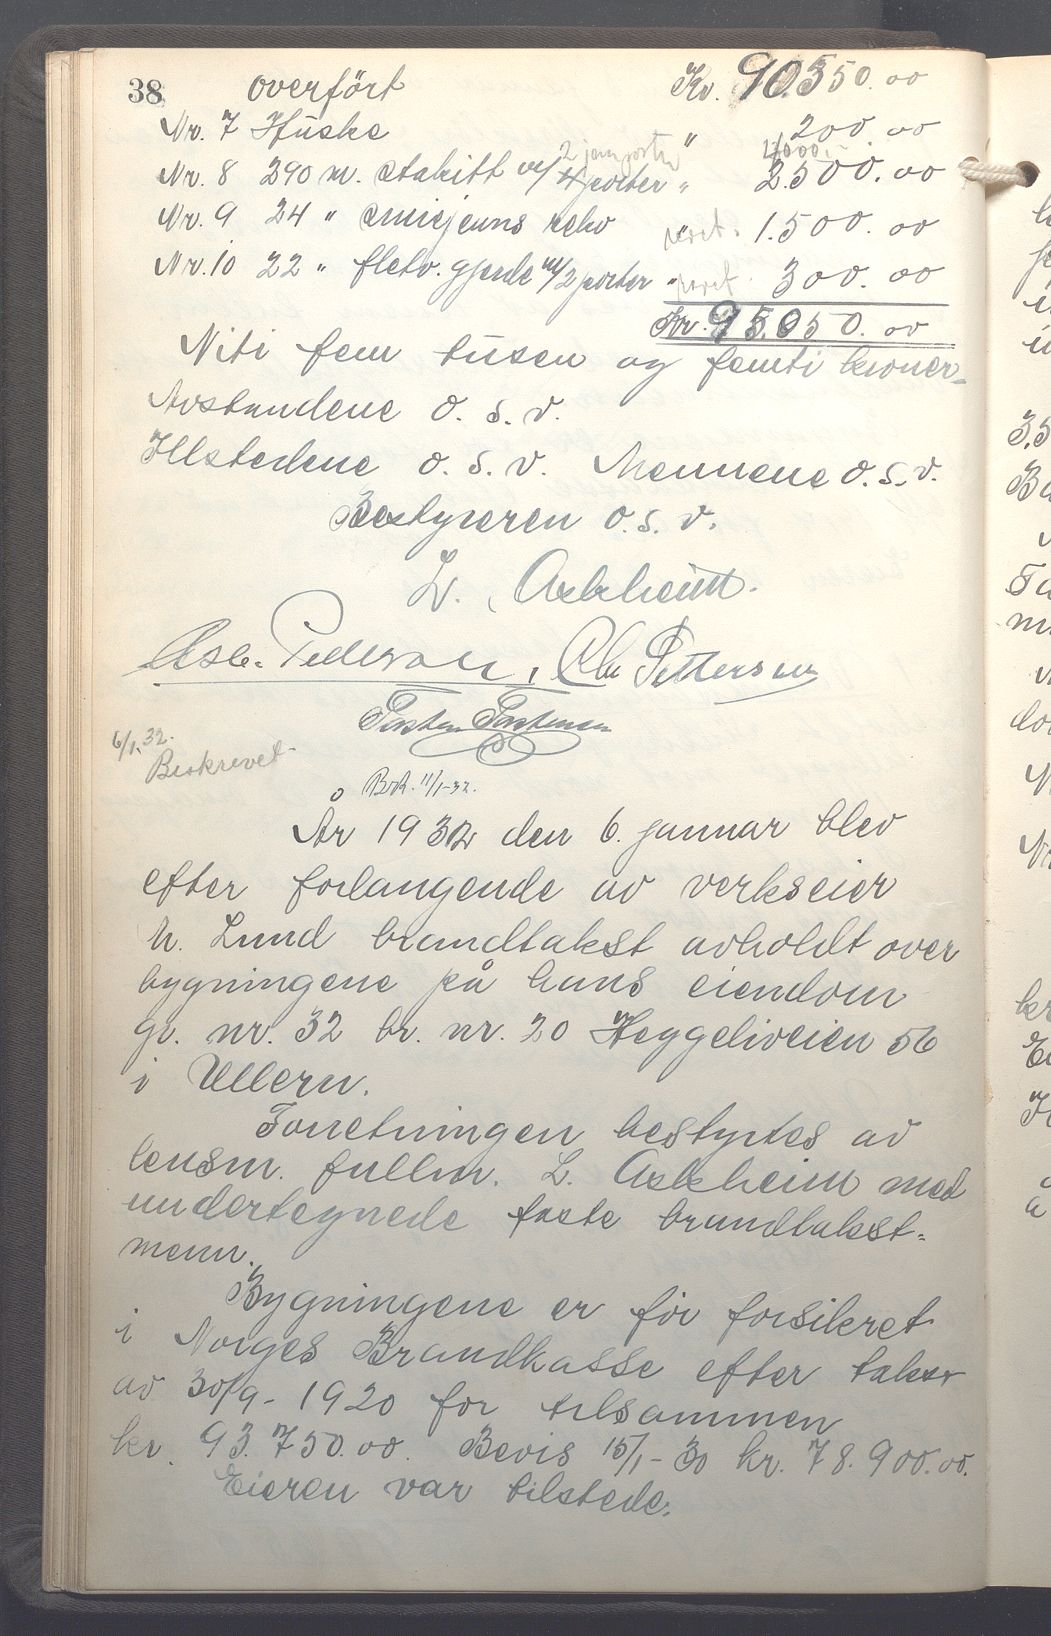 38 overført Kr. 90.550.00
Nr. 7 Huske " 200.00
2 jernporter 17000.-
Nr. 8 290 m. stakitt m/4 porter " 2.500.00
Nr. 9 24 " smiejerns rekv " 1.500.00
Nr. 10 22 " fletv. gjerde m/2 porter " 300.00
Kr. 95.050.00
Niti fem tusen og femti kroner.
Avstandene o. s. v.
Ildstedene o. s. v. Mennene o. s. v.
Bestyreren o. s. v.
L. Askheim.
Osc. Pedersen, Chr Pettersen
Torsten Torstensen
6/1. 32.
Beskrevet
Besk. 11/1-32.
År 1932 den 6. januar blev
efter forlangende av verkseier
h. Lund brandtakst avholdt over
bygningene på hans eiendom
gr. nr. 32 br. nr. 20 Heggeliveien 56
i Ullern.
Forretningen bestyrtes av
lensm. fullm. L. Askheim med
undertegnede faste brandtakst=
menn.
Bygningene er før forsikret
i Norges Brandkasse efter takst
av 30/9 - 1920 for tilsammen
kr. 93.750.00. Bevis 15/1-30 kr. 78.900.00.
Eieren var tilstede.